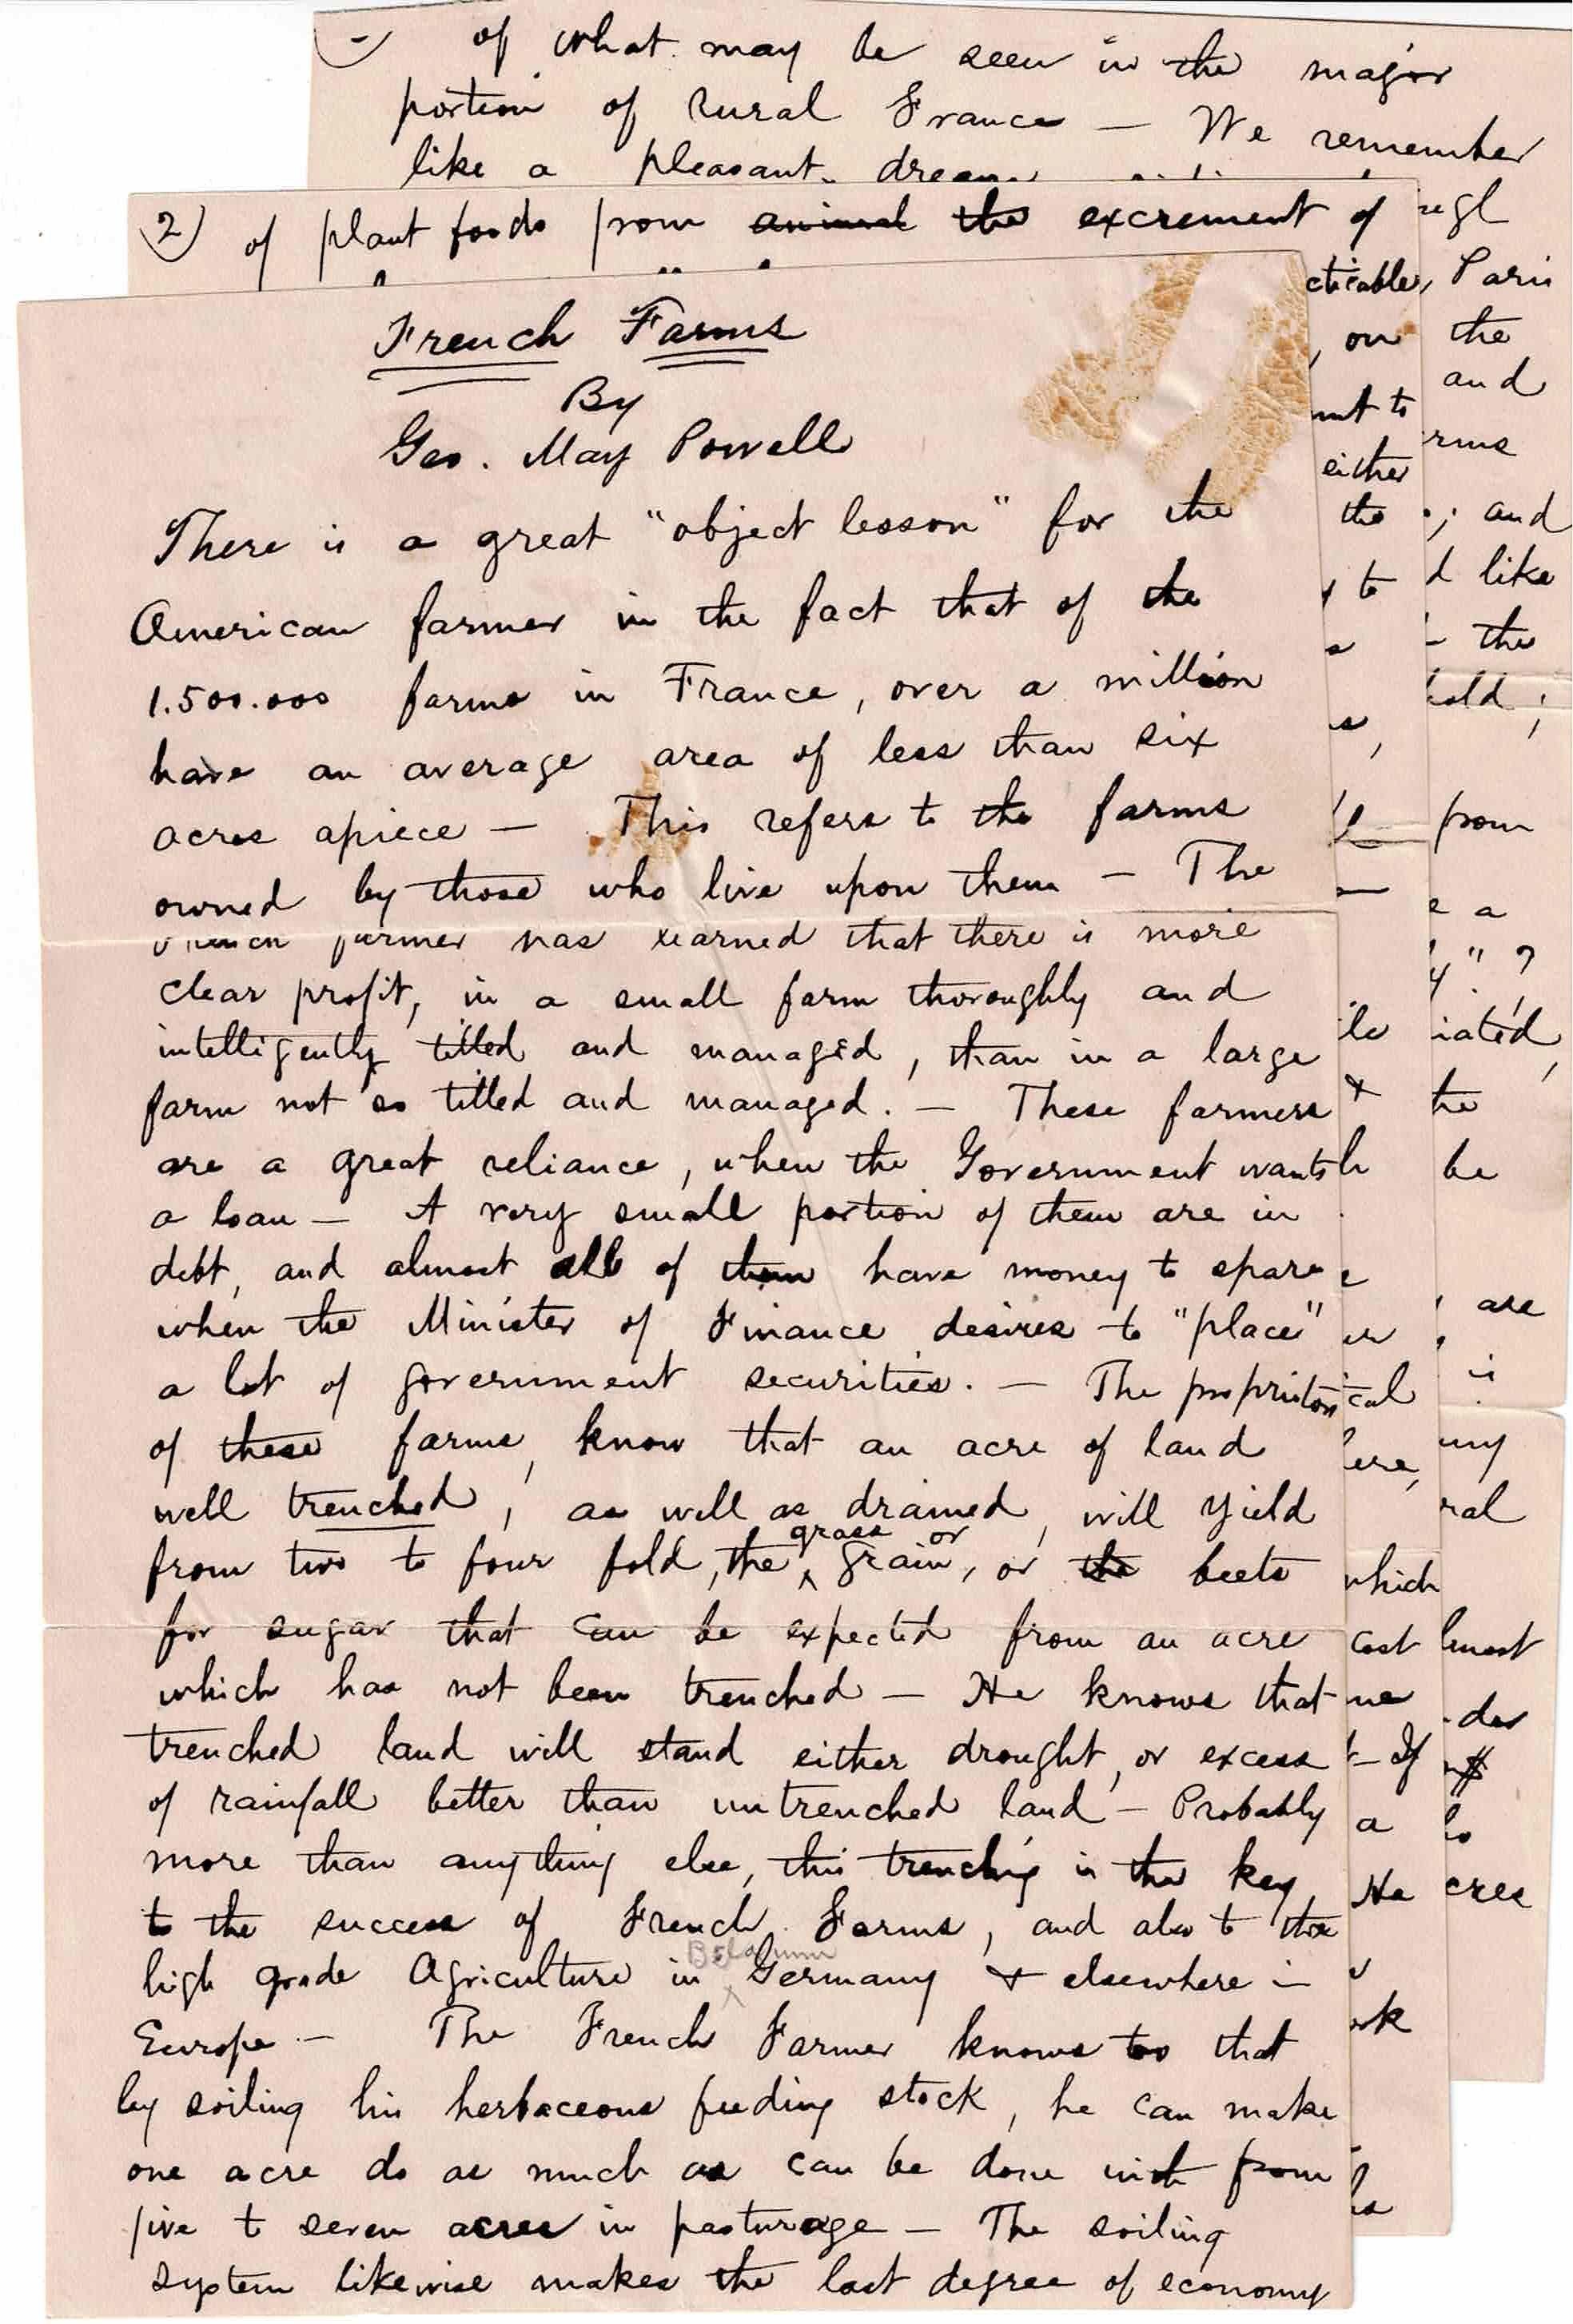 of what may be seen in the major
portion of rural France — We remember
like a pleasant dream
2) of plant foods from animal the excrement of
French Farms
By
Geo. May Powell
There is a great "object lesson" for the
American farmer in the fact that of the
1.500.000 farms in France, over a million
have an average area of less than six
acres apiece — This refers to the farms
owned by those who live upon them — The
French farmer has learned that there is more
clear profit, in a small farm thoroughly and
intelligently tilled and managed, than in a large
farm not so tilled and managed. — These farmers
are a great reliance, when the Government wants
a loan — A very small portion of them are in
debt, and almost all of them have money to spare
when the Minister of Finance desires to "place"
a lot of government securities. — The proprietors
of these farms, know that an acre of land
well trenched, as well as drained, will yield
from two to four fold, the grass or grain, or the beets
for sugar that can be expected from an acre
which has not been trenched — He knows that
trenched land will stand either drought, or excess
of rainfall better than untrenched land — Probably
more than anything else, this trenching is the key
to the success of French Farms, and also to the
high grade Agriculture in Belgium Germany & elsewhere in
Europe — The French Farmer knows too that
by soiling his herbaceous feeding stock, he can make
one acre do as much as can be done with from
five to seven acres in pasturage — The soiling
system likewise makes the last degree of economy
cticable,
on
to
either
the
to
&
cal
which
cost
If
a
He
Paris
the
and
; and
like
the
from
a
" ?
the
be
are
is